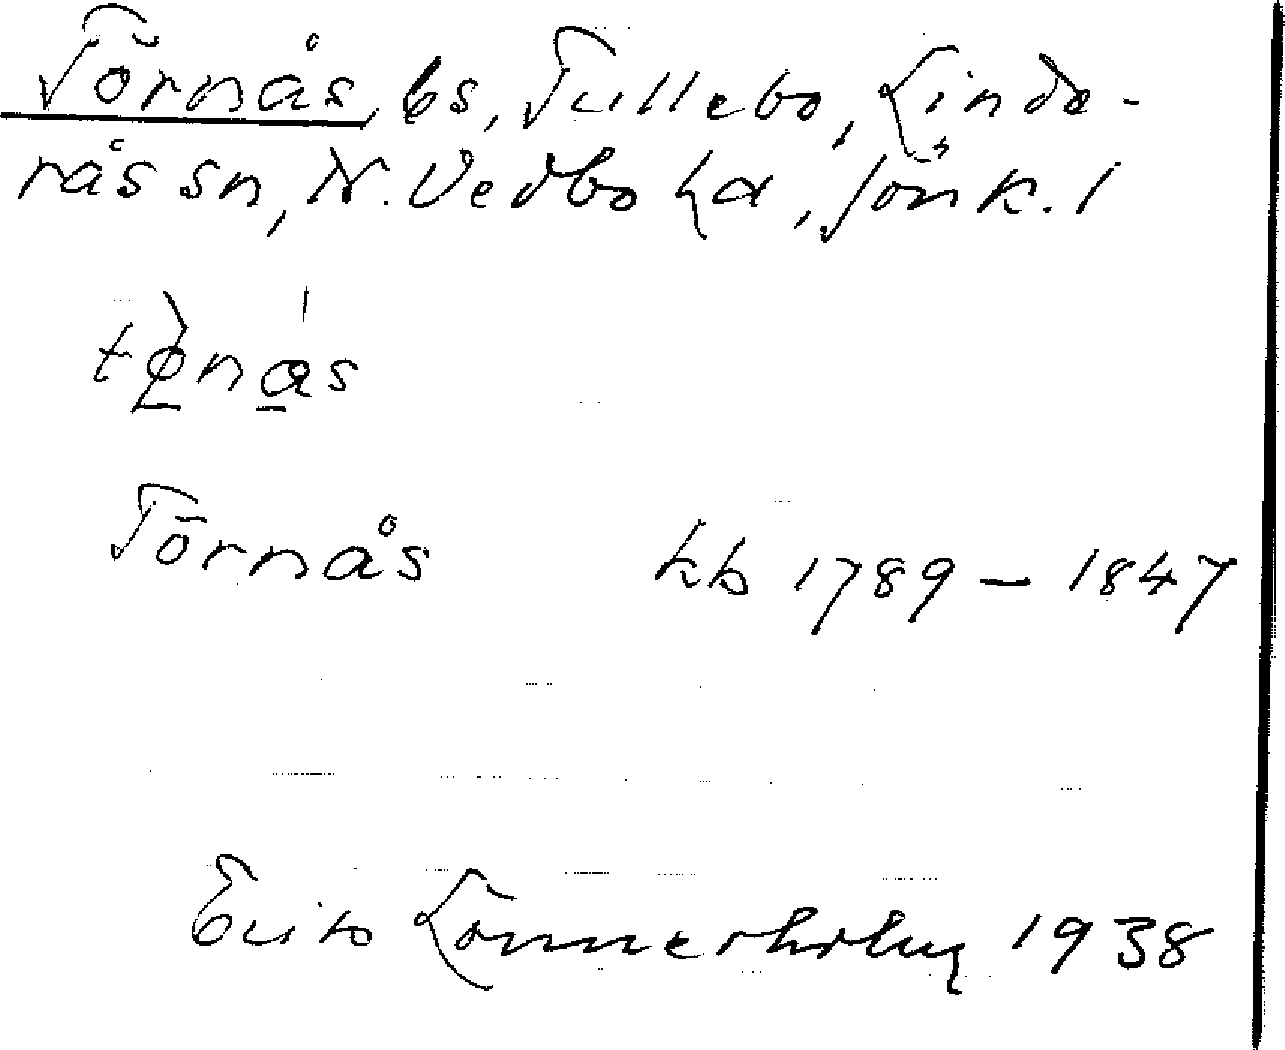 Törnås, bs, Tullebo, Linde-
rås sn, N. Vedbo hd, Jönk. l
tø̀nás
Törnås kb 1789 – 1847
Lönnerholm 1938